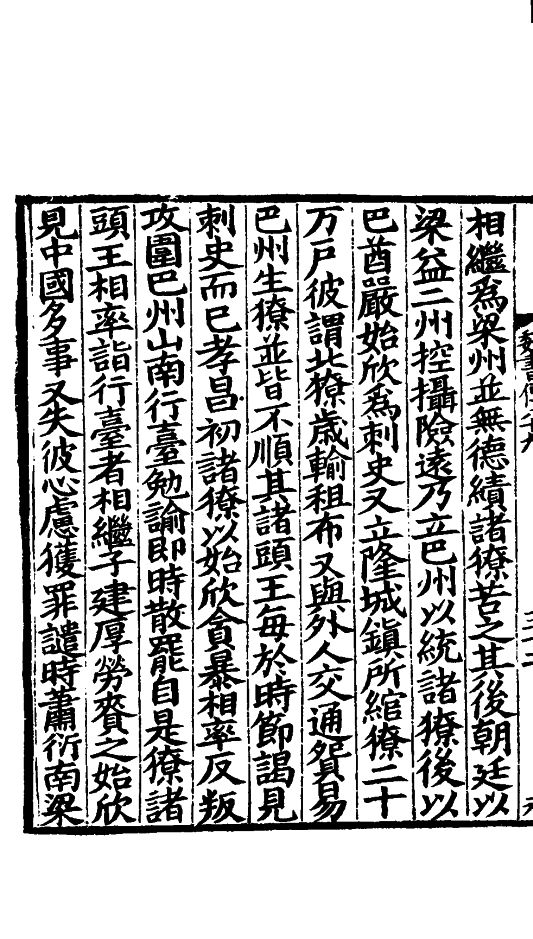 相繼爲梁州並無德績諸獠苦之其後朝廷以
梁益二州控攝險遠乃立巴州以統諸獠後以
巴酋嚴始欣爲刺史又立隆城鎮所綰獠二十
万戶彼謂北獠歲輸租布又與外人交通貿易
巴州生獠並皆不順其諸頭王每於時節謁見
刺史而已孝昌初諸獠以始欣貪暴相率反叛
攻圍巴州山南行臺勉諭即時散罷自是獠諸
頭王相率詣行臺者相繼子建厚勞賚之始欣
見中國多事又失彼心慮獲罪譴時蕭衍南梁